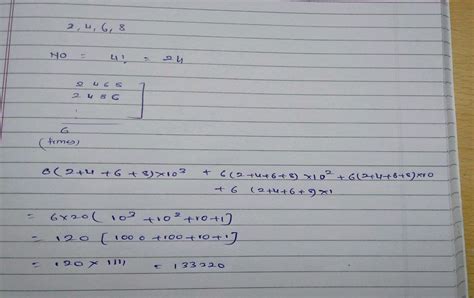 2, 4, 6, 8
NO = 4! = 24
2 4 6 8
2 4 8 6
:
6
(times)
6(2+4+6+8)×10³ + 6(2+4+6+8)×10² + 6(2+4+6+8)×10
+ 6 (2+4+6+8)×1
= 6×20( 10³ +10² +10+1]
= 120 [1000 +100+10+1]
= 120 × 1111 = 133320